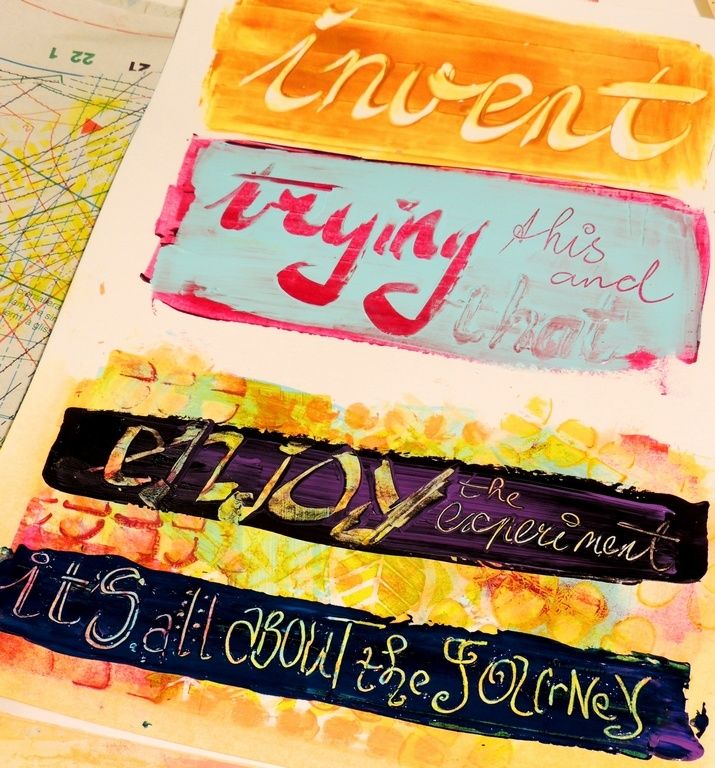 22 1
21
invent
trying this and that
enjoy the experiment
it's all ABOUT the JOURNEY